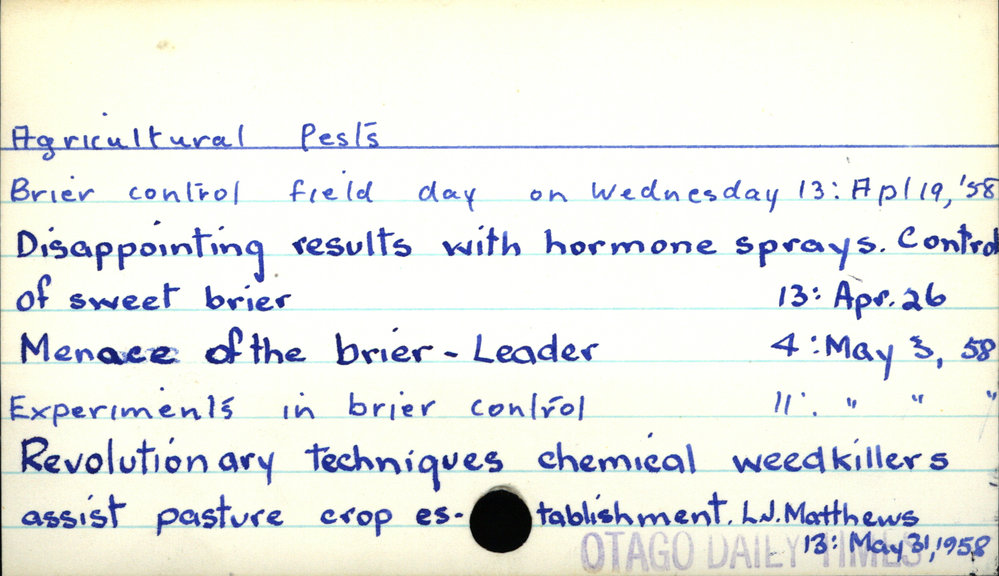 Agricultural Pests
Brier control field day on Wednesday 13: Apl 19, '58
Disappointing results with hormone sprays. Control
of sweet brier 13: Apr. 26
Menace of the brier - Leader 4: May 3, 58
Experiments in brier control 11: " " "
Revolutionary techniques chemical weedkillers
assist pasture crop es- tablishment. L.J. Matthews
13: May 31, 1958
OTAGO DAILY TIMES